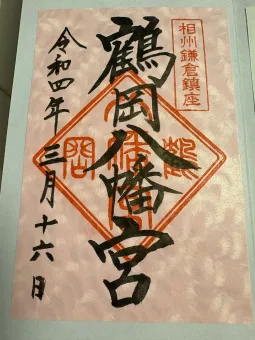 相州鎌倉鎮座
鶴岡八幡宮
令和四年三月十六日